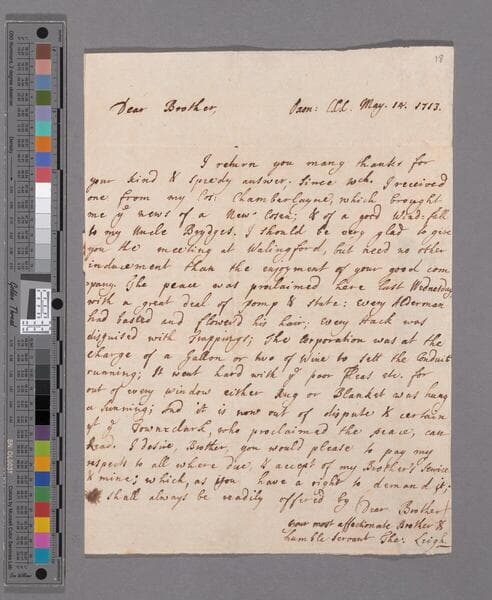 18
Dear Brother,
Oxon: Coll. May. 14. 1713.
I return you many thanks for
your kind & speedy answer; since wch. I received
one from my Cos: Chamberlayne, which brought
me ye news of a New Cosen; & of a good Wind-fall
to my Uncle Brydges. I should be very glad to give
you the meeting at Walingford, but need no other
inducement than the enjoyment of your good com
pany. The peace was proclaimed here last Wednesday
with a great deal of pomp & state: every Alderman
had basted and flower'd his hair; every Hack was
disguised with Trappings; The Corporation was at the
charge of a Gallon or two of Wine to sett the Conduit
running; It went hard with ye poor fleas etc. for
out of every window either Rug or Blanket was hung
a sunning; And it is now out of dispute & certain
yt ye Townclark, who proclaimed the peace, can
Read. I desire, Brother, you would please to pay my
respects to all where due, & accept of my Brothers Service
& mine; which, as you have a right to demand it,
shall always be readily offer'd by Dear Brother
your most affectionate Brother &
humble Servant Tho: Leigh